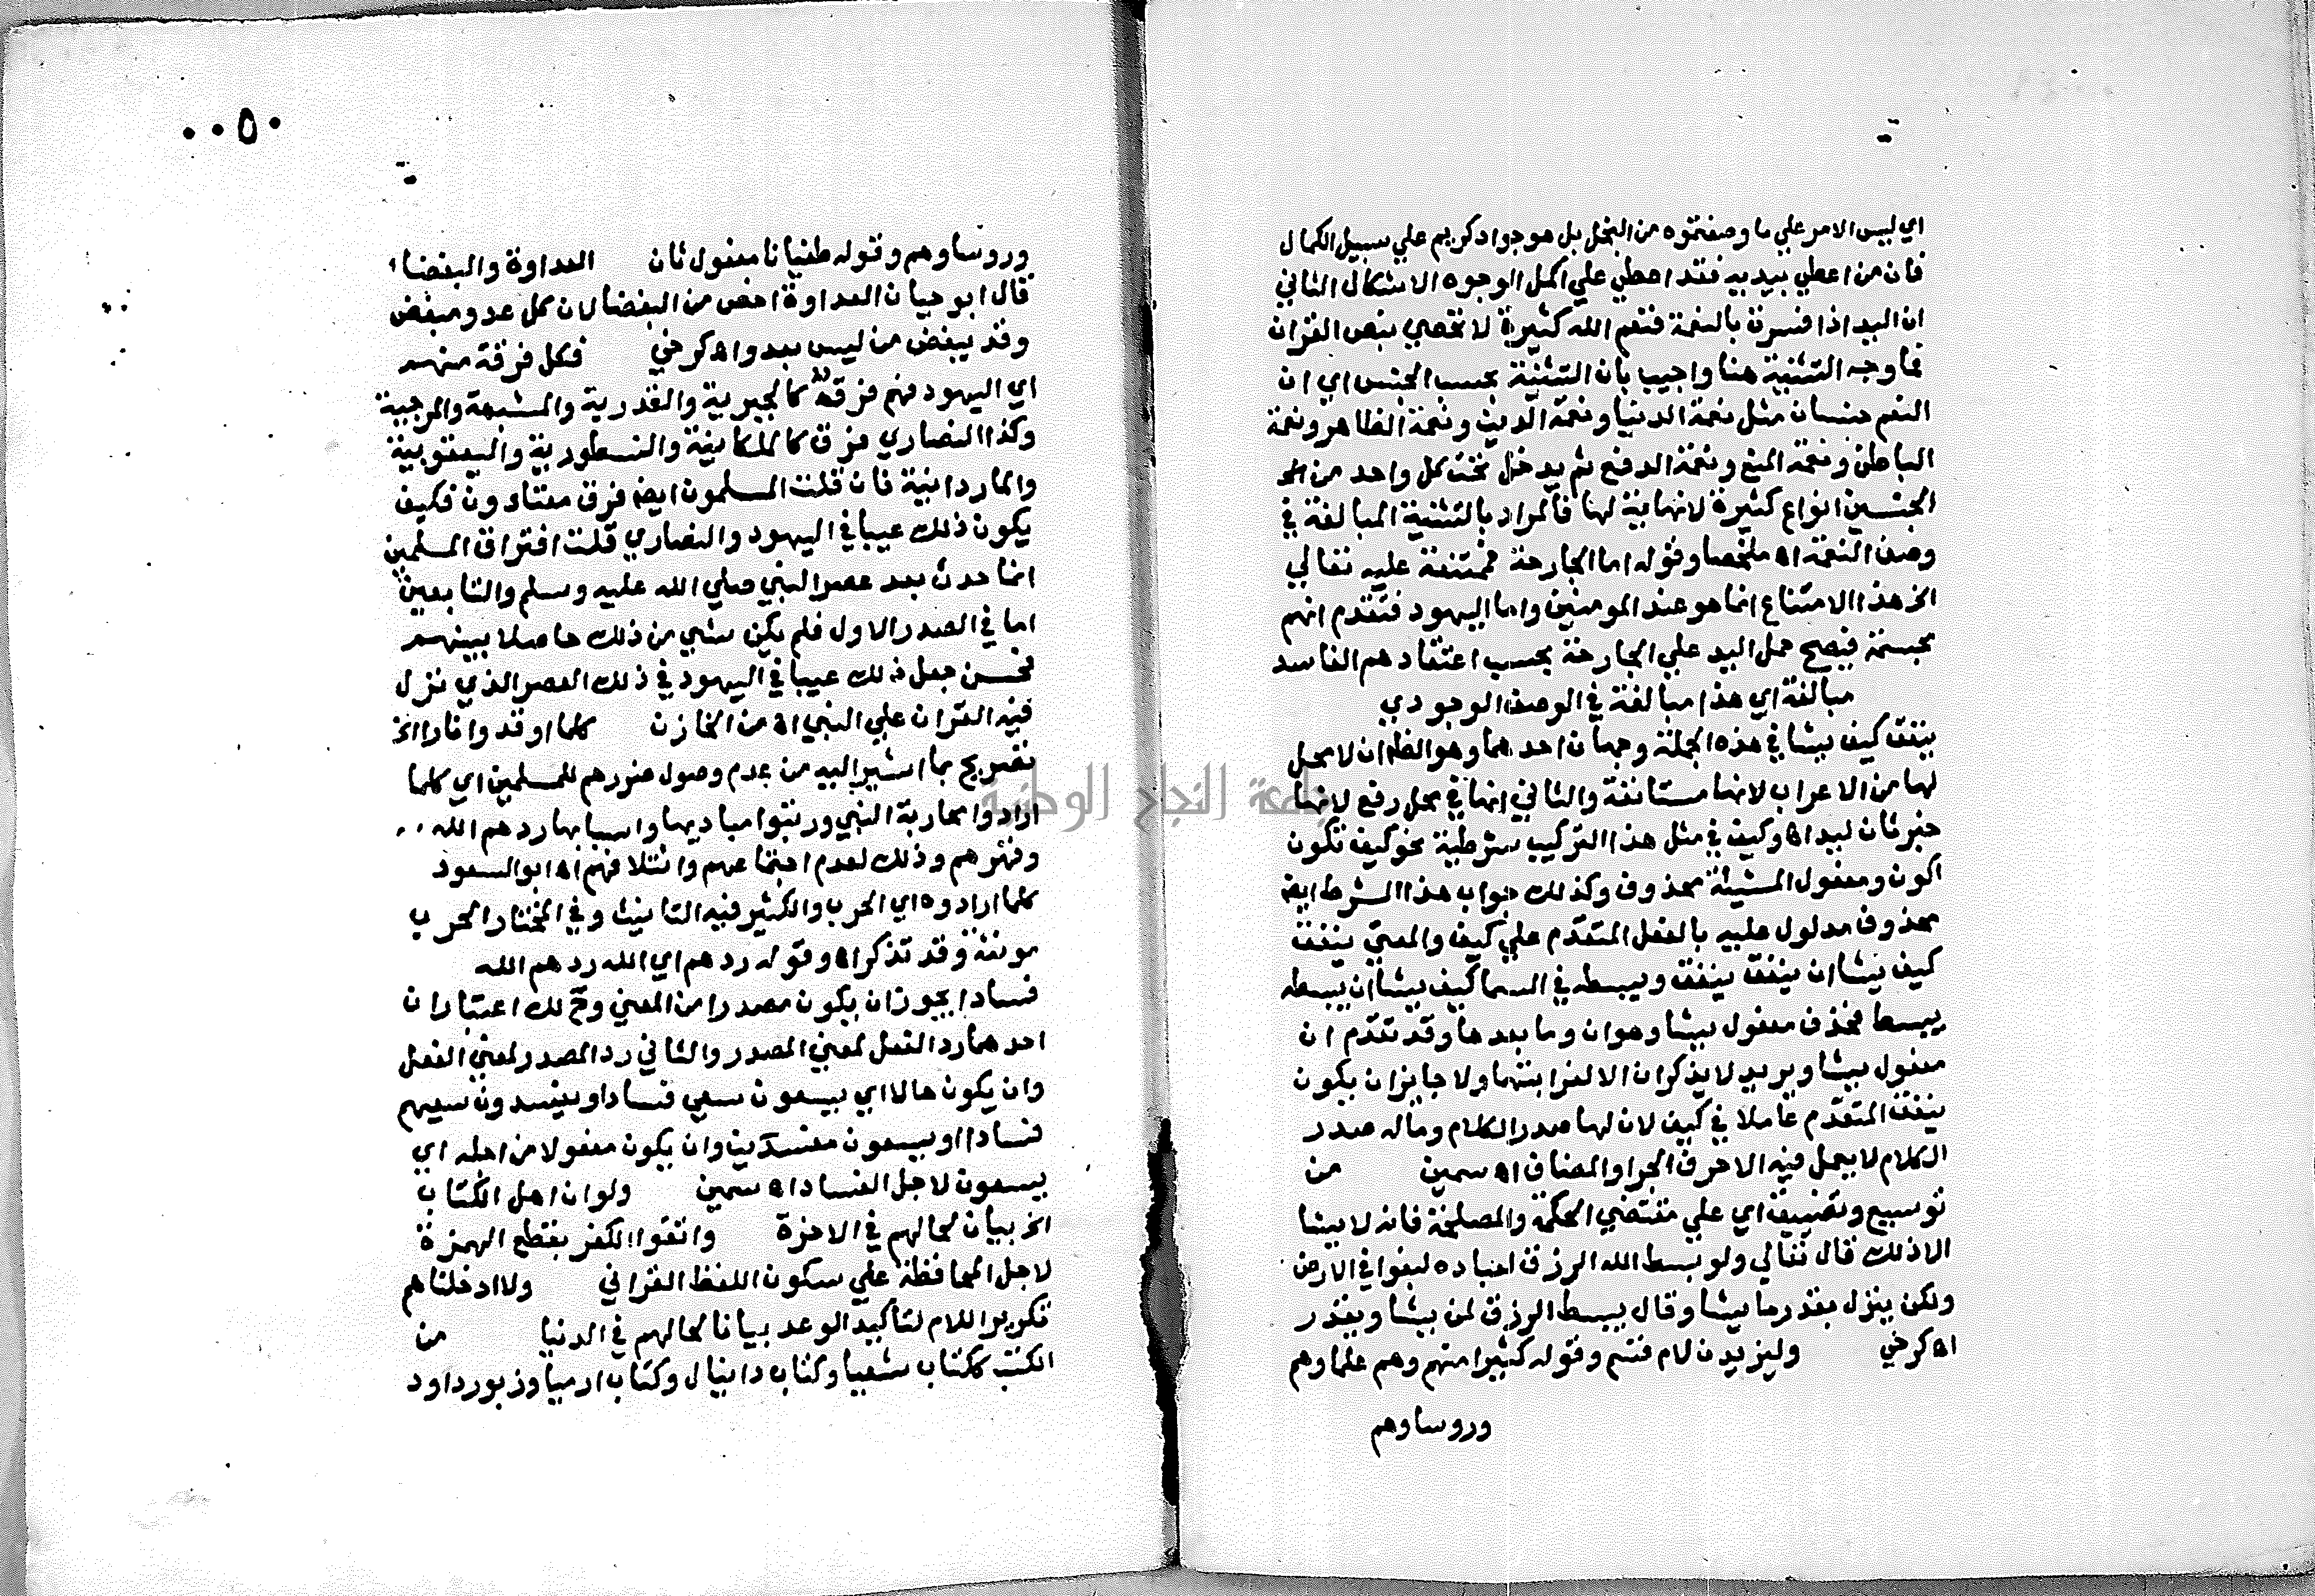 اي ليس الامر علي ما وصفتموه من البخل بل هو جواد كريم علي سبيل الكمال
فان من اعطي بيديه فقد اعطي علي اكمل الوجوه الاشكال الثاني
ان اليد اذا فسرت بالنعمة فنعم الله كثيرة لا تحصي بنص القران
فما وجه التثنية هنا واجيب بان التثنية بحسب الجنس اي ان
النعم جنسان مثل نعمة الدنيا ونعمة الدين ونعمة الظاهر ونعمة
الباطن ونعمة المنع ونعمة الدفع ثم يدخل تحت كل واحد من
الجنسين انواع كثيرة لا نهاية لها فالمراد بالتثنية المبالغة في
وصف النعمة اه ملخصا وقوله اما الجارحة فمتنعة عليه تعالي
الخ هذا الامتناع انما هو عند المومنين واما اليهود فتقدم انهم
مجسمة فيصح حمل اليد علي الجارحة بحسب اعتقادهم الفاسد
مبالغة اي هذا مبالغة في الوصف الوجودي
ينفق كيف يشا في هذه الجملة وجهان احدهما وهو الظا ان لا محل
لها من الاعراب لانها مستانفة والثاني انها في محل رفع لانها
خبر ثان ليداه وكيف في مثل هذا التركيب شرطية نحو كيف تكون
اكون ومفعول المشيئة محذوف وكذلك جواب هذا الشرط ايض
محذوف مدلول عليه بالفعل المتقدم علي كيف والمعني ينفق
كيف يشا ان ينفق ينفق ويبسطه في السما كيف يشا ان يبسطه
يبسط فحذف مفعول يشا وهو ان وما بعدها وقد تقدم ان
مفعول يشا ويريد لا يذكران الا لغرابتهما ولا جايز ان يكون
ينفق المتقدم عاملا في كيف لان لها صدر الكلام وماله صدر
الكلام لا يعمل فيه الا حرف الجر او المضاف اه سمين من
توسيع وتضييق اي علي مقتضي الحكمة والمصلحة فانه لا يشا
الا ذلك قال تعالي ولو بسط الله الرزق لعباده لبغوا في الارض
ولكن ينزل بقدر ما يشا وقال يبسط الرزق لمن يشا ويقدر
اه كرخي وليزيدن لام قسم وقوله كثيرا منهم وهم علماوهم
وروساوهم
٠٠٥٠
وروساوهم وقوله طغيانا مفعول ثان العداوة والبغضاء
قال ابو حيان العداوة اخص من البغضا لان كل عدو مبغض
وقد يبغض من ليس بعدو اه كرخي فكل فرقة منهم
اي اليهود فهم فرق كالجبرية والقدرية والمشبهة والمرجية
وكذا النصاري فرق كالملكانية والنسطورية واليعقوبية
والماردانية فان قلت المسلمون ايض فرق متعادون فكيف
يكون ذلك عيبا في اليهود والنصاري قلت افتراق المسلمين
انما حدث بعد عصر النبي صلي الله عليه وسلم والتابعين
اما في الصدر الاول فلم يكن شي من ذلك حاصلا بينهم
فحسن جعل ذلك عيبا في اليهود في ذلك العصر الذي نزل
فيه القران علي النبي اه من الخازن كلما اوقدوا نارا الخ
تصريح بما اشير اليه من عدم وصول ضررهم للمسلمين اي كلما
ارادوا محاربة النبي ورتبوا مباديها واسبابها ردهم الله
وقهرهم وذلك لعدم اجتماعهم وائتلافهم اه ابو السعود
كلما ارادوه اي الحرب والكثير فيه التانيث وفي المختار الحرب
مونثة وقد تذكر اه وقوله ردهم اي الله ردهم الله
فسادا يجوز ان يكون مصدرا من المعني وح لك اعتباران
احدهما رد الفعل لمعني المصدر والثاني رد المصدر لمعني الفعل
وان يكون حالا اي يسعون سعي فساد او يفسدون سعيهم
فسادا او يسعون مفسدين وان يكون مفعولا من اجله اي
يسعون لاجل الفساد اه سمين ولو ان اهل الكتاب
الخ بيان لحالهم في الاخرة واتقوا الكفر بقطع الهمزة
لاجل المحافظة علي سكون اللفظ القراني ولادخلناهم
تكرير اللام لتاكيد الوعد بيانا لحالهم في الدنيا من
الكتب ككتاب شعيا وكتاب دانيال وكتاب ارميا وزبور داود
جامعة النجاح الوطنية